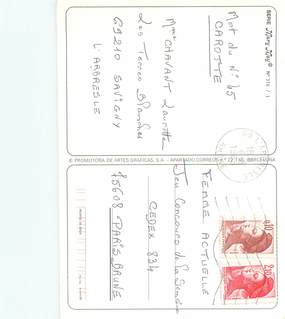 SERIE Mary May® Nº 316 / 3
Mot du Nº 65
CAROTTE
Mme CHAVANT Laurette
Les Terres Blanches
69210 SAVIGNY
L'ARBRESLE
© PROMOTORA DE ARTES GRAFICAS, S.A. - APARTADO CORREOS nº 22.160, BARCELONA
FEMME ACTUELLE
Jeu Concours de la Semaine
CEDEX 834
75608 PARIS BRUNE
0,10
2,20